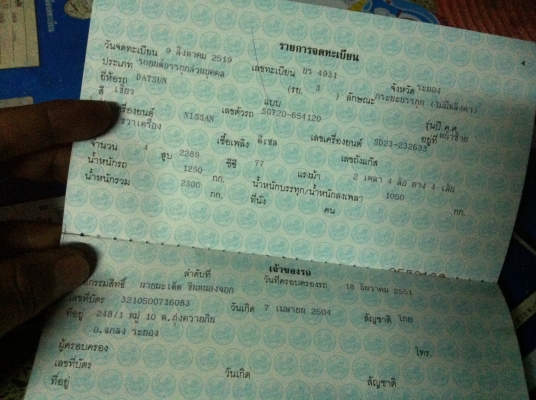 4
รายการจดทะเบียน
วันจดทะเบียน 9 สิงหาคม 2519 เลขทะเบียน บร 4931 จังหวัด ระยอง
ประเภท รถยนต์บรรทุกส่วนบุคคล (รย. 3) ลักษณะ กระบะบรรทุก (ไม่มีหลังคา)
ยี่ห้อรถ DATSUN แบบ รุ่นปี ค.ศ.
สี เขียว เลขตัวรถ SG720-654120 อยู่ที่ หน้าซ้าย
เครื่องยนต์ NISSAN เลขเครื่องยนต์ SD23-232533
ขวาเครื่อง เชื้อเพลิง ดีเซล เลขถังแก๊ส
จำนวน 4 สูบ 2289 ซีซี 77 แรงม้า 2 เพลา 4 ล้อ ยาง 4 เส้น
น้ำหนักรถ 1250 กก. น้ำหนักบรรทุก/น้ำหนักลงเพลา 1050 กก.
น้ำหนักรวม 2300 กก. ที่นั่ง คน
เจ้าของรถ
ลำดับที่ วันที่ครอบครองรถ 18 ธันวาคม 2551
กรรมสิทธิ์
เลขที่บัตร 3210500716083 วันเกิด 7 เมษายน 2504 สัญชาติ ไทย
ที่อยู่ 248/1 หมู่ 10 ต.ทุ่งควายกิน
อ.แกลง ระยอง โทร.
ผู้ครอบครอง
เลขที่บัตร วันเกิด สัญชาติ
ที่อยู่